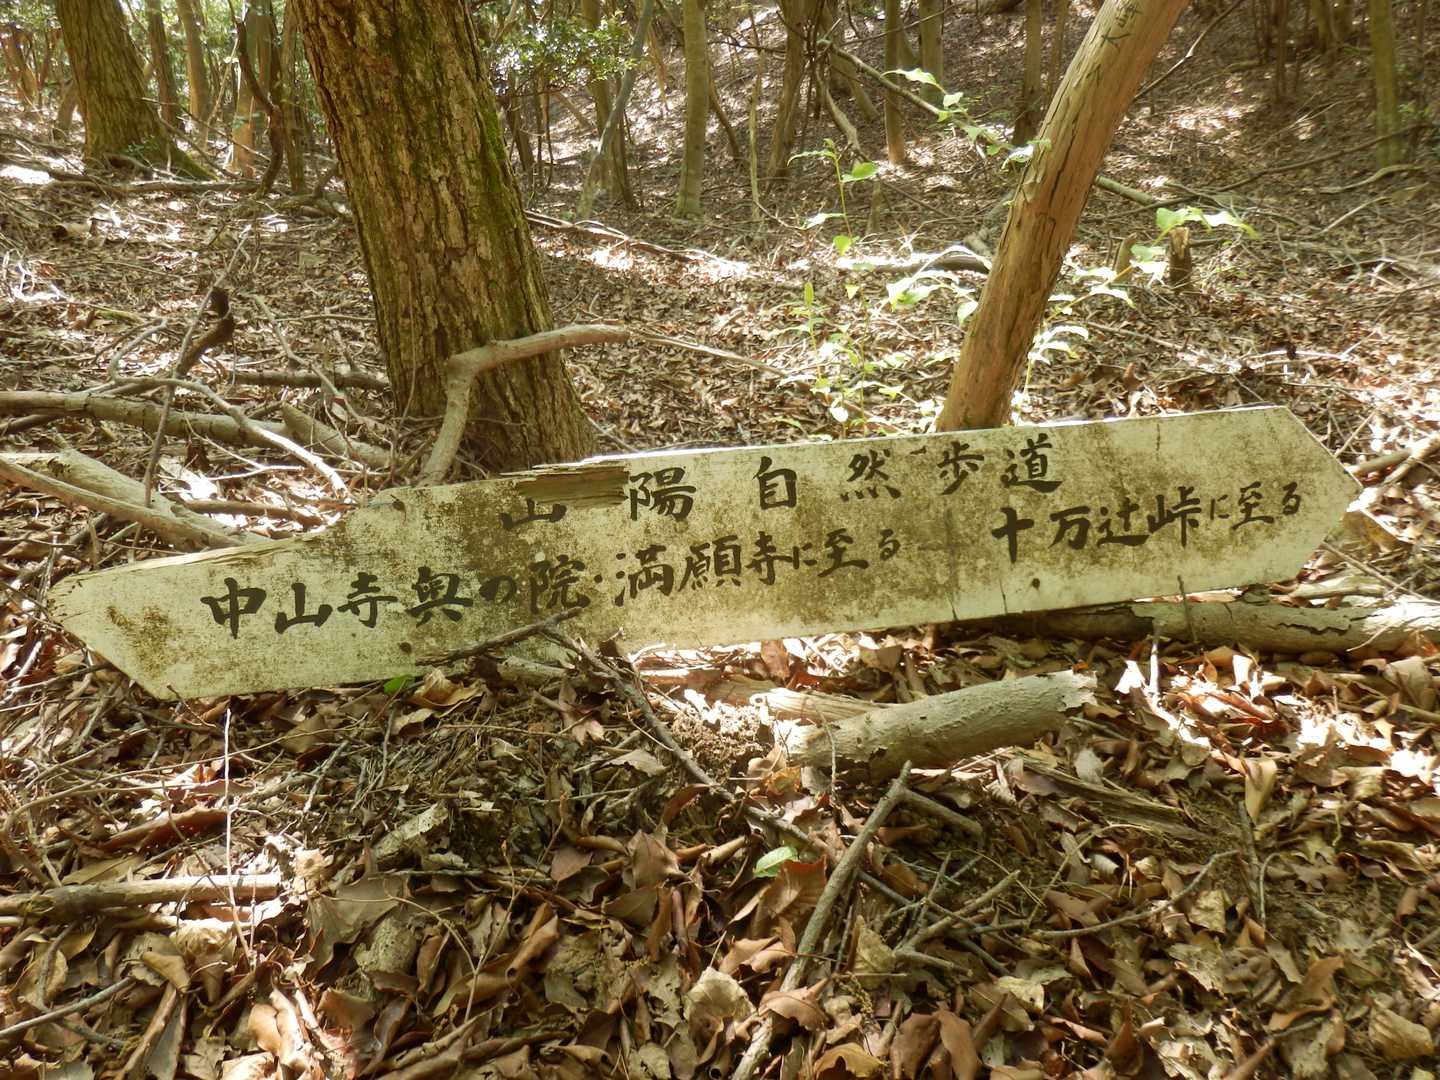 山陽自然歩道
中山寺奥の院・満願寺に至る 十万辻峠に至る